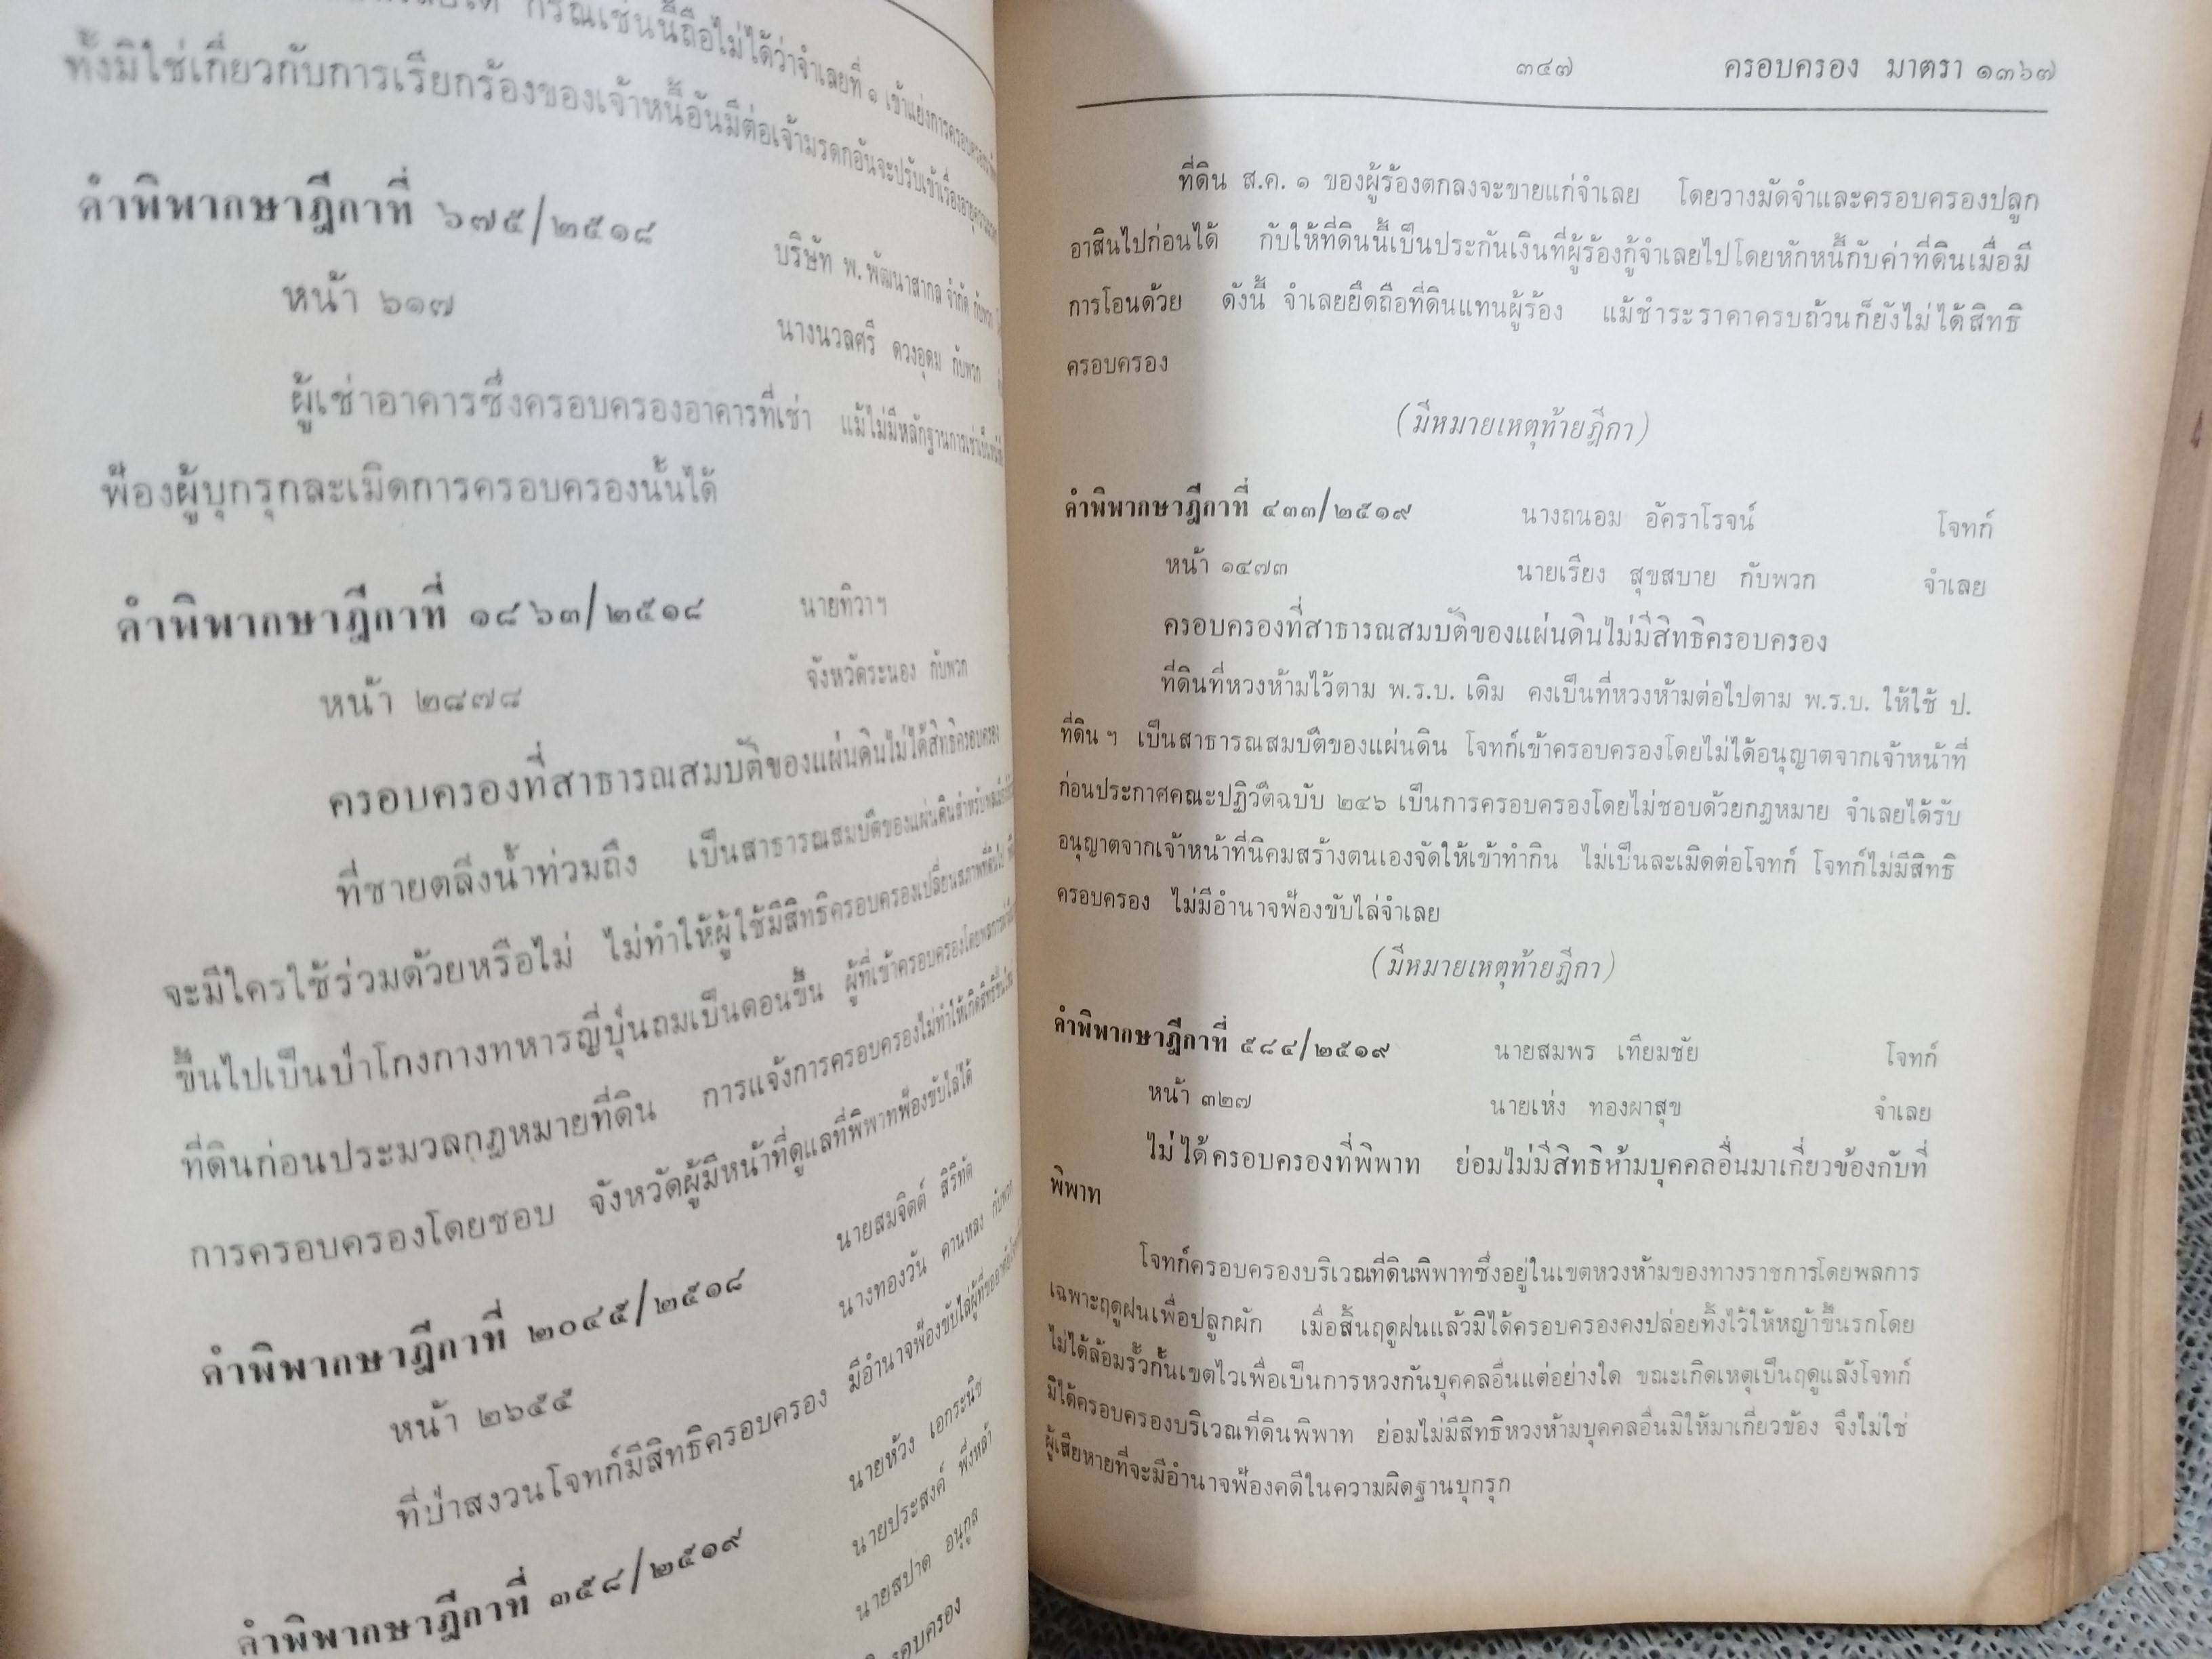 กรณีเช่นนี้ถือไม่ได้ว่าจำเลยที่ ๑ เข้าแย่งการครอบครอง
ทั้งมิใช่เกี่ยวกับการเรียกร้องของเจ้าหนี้อันมีต่อเจ้ามรดกอันจะปรับเข้าเรื่องอายุความ
คำพิพากษาฎีกาที่ ๖๗๕/๒๕๑๘ บริษัท พ. พัฒนาสากล จำกัด กับพวก
หน้า ๖๑๗ นางนวลศรี ดวงอุดม กับพวก
ผู้เช่าอาคารซึ่งครอบครองอาคารที่เช่า แม้ไม่มีหลักฐานการเช่า
ฟ้องผู้บุกรุกละเมิดการครอบครองนั้นได้
คำพิพากษาฎีกาที่ ๑๘๖๓/๒๕๑๘ นายทิวาฯ
หน้า ๒๘๗๘ จังหวัดระนอง กับพวก
ครอบครองที่สาธารณสมบัติของแผ่นดินไม่ได้สิทธิครอบครอง
ที่ชายตลิ่งน้ำท่วมถึง เป็นสาธารณสมบัติของแผ่นดินสำหรับ
จะมีใครใช้ร่วมด้วยหรือไม่ ไม่ทำให้ผู้ใช้มีสิทธิครอบครองเปลี่ยนสภาพที่ดิน
ขึ้นไปเป็นป่าโกงกางทหารญี่ปุ่นถมเป็นดอนขึ้น ผู้ที่เข้าครอบครองโดยพลการ
ที่ดินก่อนประมวลกฎหมายที่ดิน การแจ้งการครอบครองไม่ทำให้เกิดสิทธิขึ้นใหม่
การครอบครองโดยชอบ จังหวัดผู้มีหน้าที่ดูแลที่พิพาทฟ้องขับไล่ได้
คำพิพากษาฎีกาที่ ๒๐๔๕/๒๕๑๘ นายสมจิตต์ สิริทัต
หน้า ๒๖๕๕ นางทองวัน คานหลง กับพวก
ที่ป่าสงวนโจทก์มีสิทธิครอบครอง มีอำนาจฟ้องขับไล่ผู้ที่ขออาศัย
คำพิพากษาฎีกาที่ ๓๕๘/๒๕๑๙ นายห้วง เอกระนิช
นายประสงค์ พึ่งหล้า
นายสปาด อนุกูล
๓๔๗ ครอบครอง มาตรา ๑๓๖๗
ที่ดิน ส.ค. ๑ ของผู้ร้องตกลงจะขายแก่จำเลย โดยวางมัดจำและครอบครองปลูก
อาสินไปก่อนได้ กับให้ที่ดินนี้เป็นประกันเงินที่ผู้ร้องกู้จำเลยไปโดยหักหนี้กับค่าที่ดินเมื่อมี
การโอนด้วย ดังนี้ จำเลยยึดถือที่ดินแทนผู้ร้อง แม้ชำระราคาครบถ้วนก็ยังไม่ได้สิทธิ
ครอบครอง
(มีหมายเหตุท้ายฎีกา)
คำพิพากษาฎีกาที่ ๔๓๓/๒๕๑๙ นางถนอม อัคราโรจน์ โจทก์
หน้า ๑๔๗๓ นายเรียง สุขสบาย กับพวก จำเลย
ครอบครองที่สาธารณสมบัติของแผ่นดินไม่มีสิทธิครอบครอง
ที่ดินที่หวงห้ามไว้ตาม พ.ร.บ. เดิม คงเป็นที่หวงห้ามต่อไปตาม พ.ร.บ. ให้ใช้ ป.
ที่ดิน ฯ เป็นสาธารณสมบัติของแผ่นดิน โจทก์เข้าครอบครองโดยไม่ได้อนุญาตจากเจ้าหน้าที่
ก่อนประกาศคณะปฏิวัติฉบับ ๒๔๖ เป็นการครอบครองโดยไม่ชอบด้วยกฎหมาย จำเลยได้รับ
อนุญาตจากเจ้าหน้าที่นิคมสร้างตนเองจัดให้เข้าทำกิน ไม่เป็นละเมิดต่อโจทก์ โจทก์ไม่มีสิทธิ
ครอบครอง ไม่มีอำนาจฟ้องขับไล่จำเลย
(มีหมายเหตุท้ายฎีกา)
คำพิพากษาฎีกาที่ ๕๘๔/๒๕๑๙ นายสมพร เทียมชัย โจทก์
หน้า ๓๒๗ นายเห่ง ทองผาสุข จำเลย
ไม่ได้ครอบครองที่พิพาท ย่อมไม่มีสิทธิห้ามบุคคลอื่นมาเกี่ยวข้องกับที่
พิพาท
โจทก์ครอบครองบริเวณที่ดินพิพาทซึ่งอยู่ในเขตหวงห้ามของทางราชการโดยพลการ
เฉพาะฤดูฝนเพื่อปลูกผัก เมื่อสิ้นฤดูฝนแล้วมิได้ครอบครองคงปล่อยทิ้งไว้ให้หญ้าขึ้นรกโดย
ไม่ได้ล้อมรั้วกั้นเขตไวเพื่อเป็นการหวงกันบุคคลอื่นแต่อย่างใด ขณะเกิดเหตุเป็นฤดูแล้งโจทก์
มิได้ครอบครองบริเวณที่ดินพิพาท ย่อมไม่มีสิทธิหวงห้ามบุคคลอื่นมิให้มาเกี่ยวข้อง จึงไม่ใช่
ผู้เสียหายที่จะมีอำนาจฟ้องคดีในความผิดฐานบุกรุก